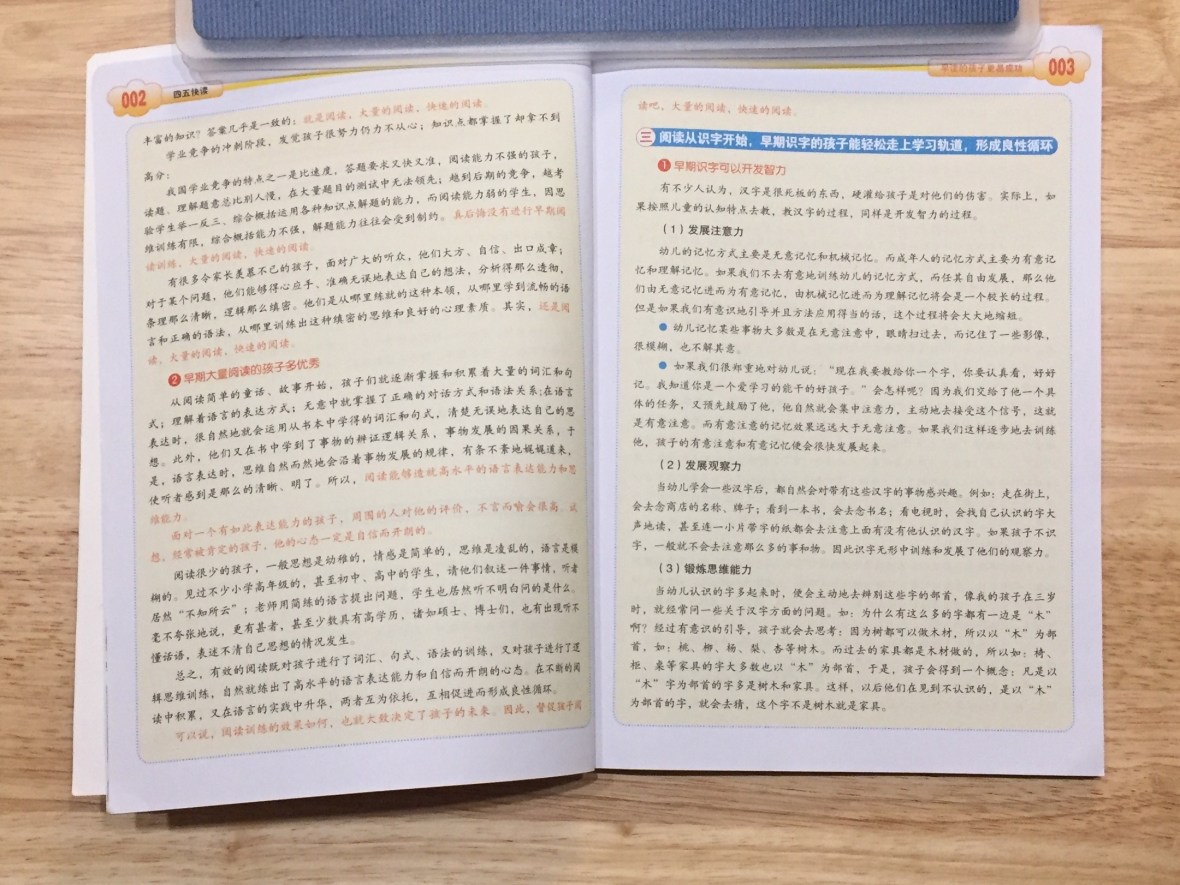 002
四五快读
丰富的知识？答案几乎是一致的：就是阅读，大量的阅读，快速的阅读。
学业竞争的冲刺阶段，发觉孩子很努力仍力不从心；知识点都掌握了却拿不到
高分：
我国学业竞争的特点之一是比速度，答题要求又快又准，阅读能力不强的孩子，
读题、理解题意总比别人慢，在大量题目的测试中无法领先；越到后期的竞争，越考
验学生举一反三、综合概括运用各种知识点解题的能力，而阅读能力弱的学生，因思
维训练有限，综合概括能力不强，解题能力往往会受到制约。真后悔没有进行早期阅
读训练，大量的阅读，快速的阅读。
有很多令家长羡慕不已的孩子，面对广大的听众，他们大方、自信、出口成章；
对于某个问题，他们能够得心应手、准确无误地表达自己的想法，分析得那么透彻，
条理那么清晰，逻辑那么缜密。他们是从哪里练就的这种本领，从哪里学到流畅的语
言和正确的语法，从哪里训练出这种缜密的思维和良好的心理素质。其实，还是阅
读，大量的阅读，快速的阅读。
2 早期大量阅读的孩子多优秀
从阅读简单的童话、故事开始，孩子们就逐渐掌握和积累着大量的词汇和句
式；理解着语言的表达方式；无意中就掌握了正确的对话方式和语法关系；在语言
表达时，很自然地就会运用从书本中学得的词汇和句式，清楚无误地表达自己的思
想。此外，他们又在书中学到了事物的辩证逻辑关系，事物发展的因果关系，于
是，语言表达时，思维自然而然地会沿着事物发展的规律，有条不紊地娓娓道来，
使听者感到是那么的清晰、明了。所以，阅读能够造就高水平的语言表达能力和思
维能力。
面对一个有如此表达能力的孩子，周围的人对他的评价，不言而喻会很高。试
想，经常被肯定的孩子，他的心态一定是自信而开朗的。
阅读很少的孩子，一般思想是幼稚的，情感是简单的，思维是凌乱的，语言是模
糊的。见过不少小学高年级的，甚至初中、高中的学生，请他们叙述一件事情，听者
居然“不知所云”；老师用简练的语言提出问题，学生也居然听不明白问的是什么。
毫不夸张地说，更有甚者，甚至少数具有高学历，诸如硕士、博士们，也有出现听不
懂话语，表述不清自己思想的情况发生。
总之，有效的阅读既对孩子进行了词汇、句式、语法的训练，又对孩子进行了逻
辑思维训练，自然就练出了高水平的语言表达能力和自信而开朗的心态。在不断的阅
读中积累，又在语言的实践中升华，两者互为依托，互相促进而形成良性循环。
可以说，阅读训练的效果如何，也就大致决定了孩子的未来。因此，督促孩子阅
早读的孩子更易成功
003
读吧，大量的阅读，快速的阅读。
三 阅读从识字开始，早期识字的孩子能轻松走上学习轨道，形成良性循环
1 早期识字可以开发智力
有不少人认为，汉字是很死板的东西，硬灌给孩子是对他们的伤害。实际上，如
果按照儿童的认知特点去教，教汉字的过程，同样是开发智力的过程。
（1）发展注意力
幼儿的记忆方式主要是无意记忆和机械记忆。而成年人的记忆方式主要为有意记
忆和理解记忆。如果我们不去有意地训练幼儿的记忆方式，而任其自由发展，那么他
们由无意记忆进而为有意记忆，由机械记忆进而为理解记忆将会是一个较长的过程。
但是如果我们有意识地引导并且方法应用得当的话，这个过程将会大大地缩短。
● 幼儿记忆某些事物大多数是在无意注意中，眼睛扫过去，而记住了一些影像，
很模糊，也不解其意。
● 如果我们很郑重地对幼儿说：“现在我要教给你一个字，你要认真看，好好
记。我知道你是一个爱学习的能干的好孩子。”会怎样呢？因为我们交给了他一个具
体的任务，又预先鼓励了他，他自然就会集中注意力，主动地去接受这个信号，这就
是有意注意。而有意注意的记忆效果远远大于无意注意。如果我们这样逐步地去训练
他，孩子的有意注意和有意记忆便会很快发展起来。
（2）发展观察力
当幼儿学会一些汉字后，都自然会对带有这些汉字的事物感兴趣。例如：走在街上，
会去念商店的名称、牌子；看到一本书，会去念书名；看电视时，会找自己认识的字大
声地读，甚至连一小片带字的纸都会去注意上面有没有他认识的汉字。如果孩子不识
字，一般就不会去注意那么多的事和物。因此识字无形中训练和发展了他们的观察力。
（3）锻炼思维能力
当幼儿认识的字多起来时，便会主动地去辨别这些字的部首，像我的孩子在三岁
时，就经常问一些关于汉字方面的问题。如：为什么有这么多的字都有一边是“木”
啊？经过有意识的引导，孩子就会去思考：因为树都可以做木材，所以以“木”为部
首，如：桃、柳、杨、梨、杏等树木。而过去的家具都是木材做的，所以如：椅、
柜、桌等家具的字大多数也以“木”为部首，于是，孩子会得到一个概念：凡是以
“木”字为部首的字多是树木和家具。这样，以后他们在见到不认识的，是以“木”
为部首的字，就会去猜，这个字不是树木就是家具。